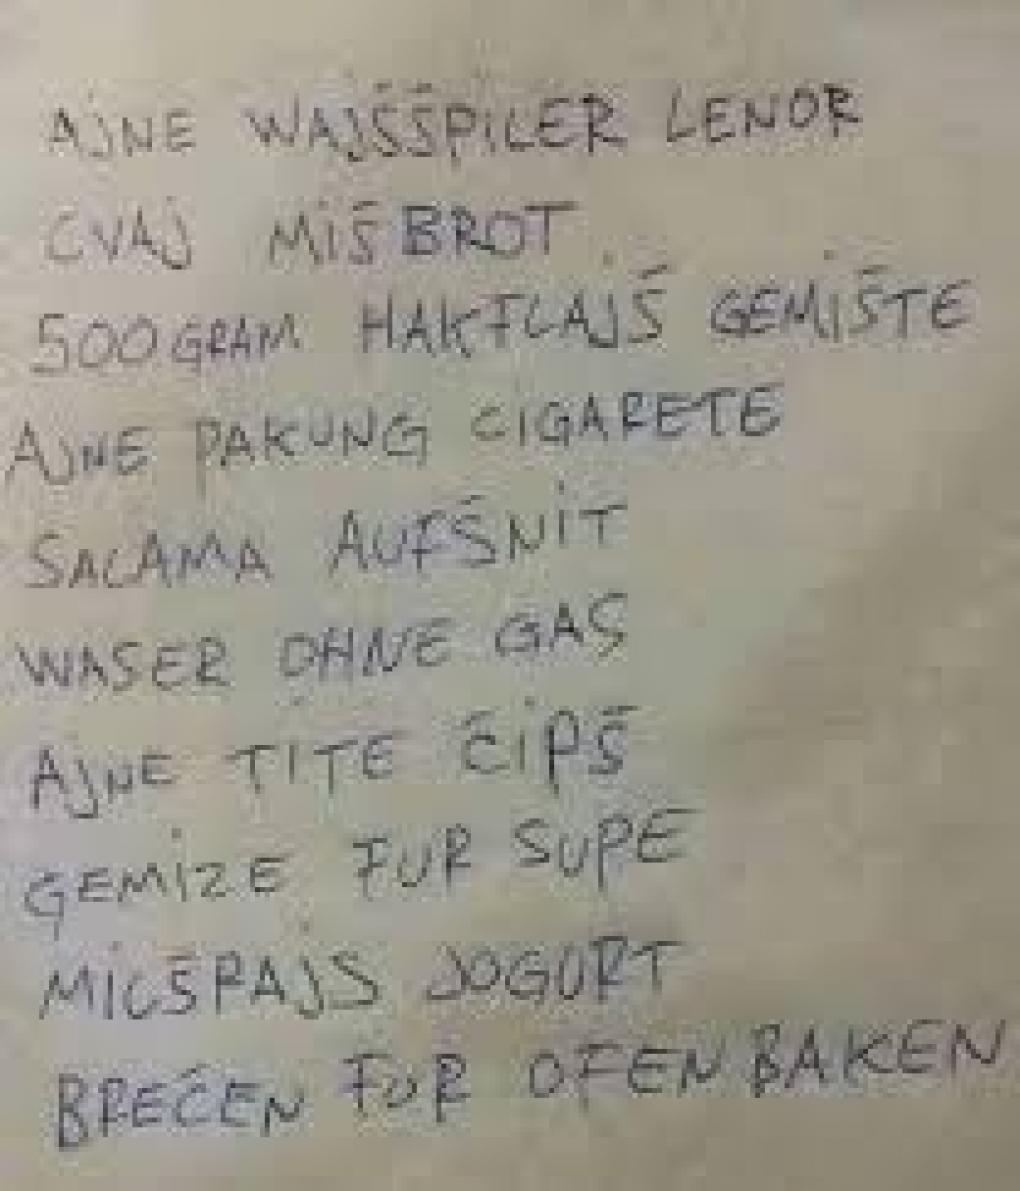 AJNE WAJŠŠPILER LENOR
CVAJ MIŠBROT
500GRAM HAKFLAJŠ GEMIŠTE
AJNE PAKUNG CIGARETE
SALAMA AUFŠNIT
WASER OHNE GAS
AJNE TITE ČIPŠ
GEMIZE FUR SUPE
MILŠPAJS JOGURT
BREČEN FUR OFEN BAKEN